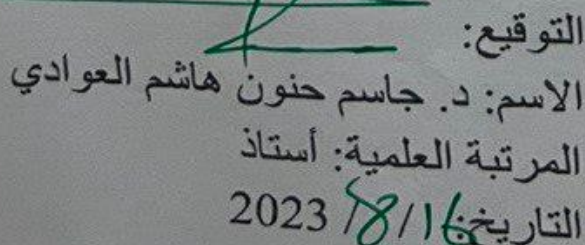 التوقيع:
الاسم: د. جاسم حنون هاشم العوادي
المرتبة العلمية: أستاذ
التاريخ: 16/8/2023